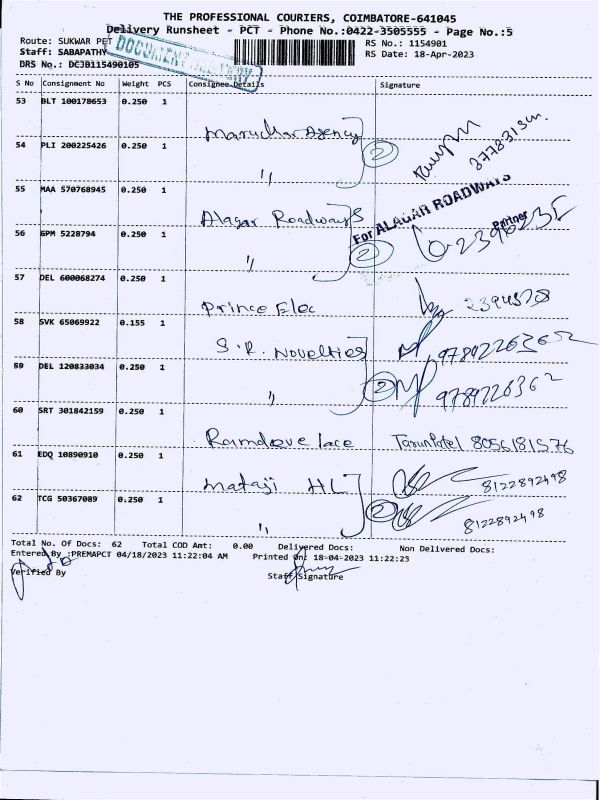 THE PROFESSIONAL COURIERS, COIMBATORE-641045
Delivery Runsheet - PCT - Phone No.:0422-3505555 - Page No.:5
Route: SUKWAR PET
RS No.: 1154901
Staff: SABAPATHY
RS Date: 18-Apr-2023
DRS No.: DCJB115490105
DOCUMENT
S No Consignment No Weight PCS Consignee Details Signature
53 BLT 100178653 0.250 1
Marudhar Agency
54 PLI 200225426 0.250 1
〃 2
55 MAA 570768945 0.250 1
Alagar Roadways
For ALAGAR ROADWAYS
Partner
56 GPM 5228794 0.250 1
〃 2
57 DEL 600068274 0.250 1
Prince Elec
58 SVK 65069922 0.155 1
S.R. Novelties
59 DEL 120833034 0.250 1
〃 2 9789226362
60 SRT 301842159 0.250 1
Ramdeve lace Tarun Patel 8056181576
61 EDQ 10890910 0.250 1
Mataji HL 8122892498
62 TCG 50367089 0.250 1
〃 2 8122892498
Total No. Of Docs: 62 Total COD Amt: 0.00 Delivered Docs: Non Delivered Docs:
Entered By :PREMAPCT 04/18/2023 11:22:04 AM Printed On: 18-04-2023 11:22:23
Verified By Staff Signature